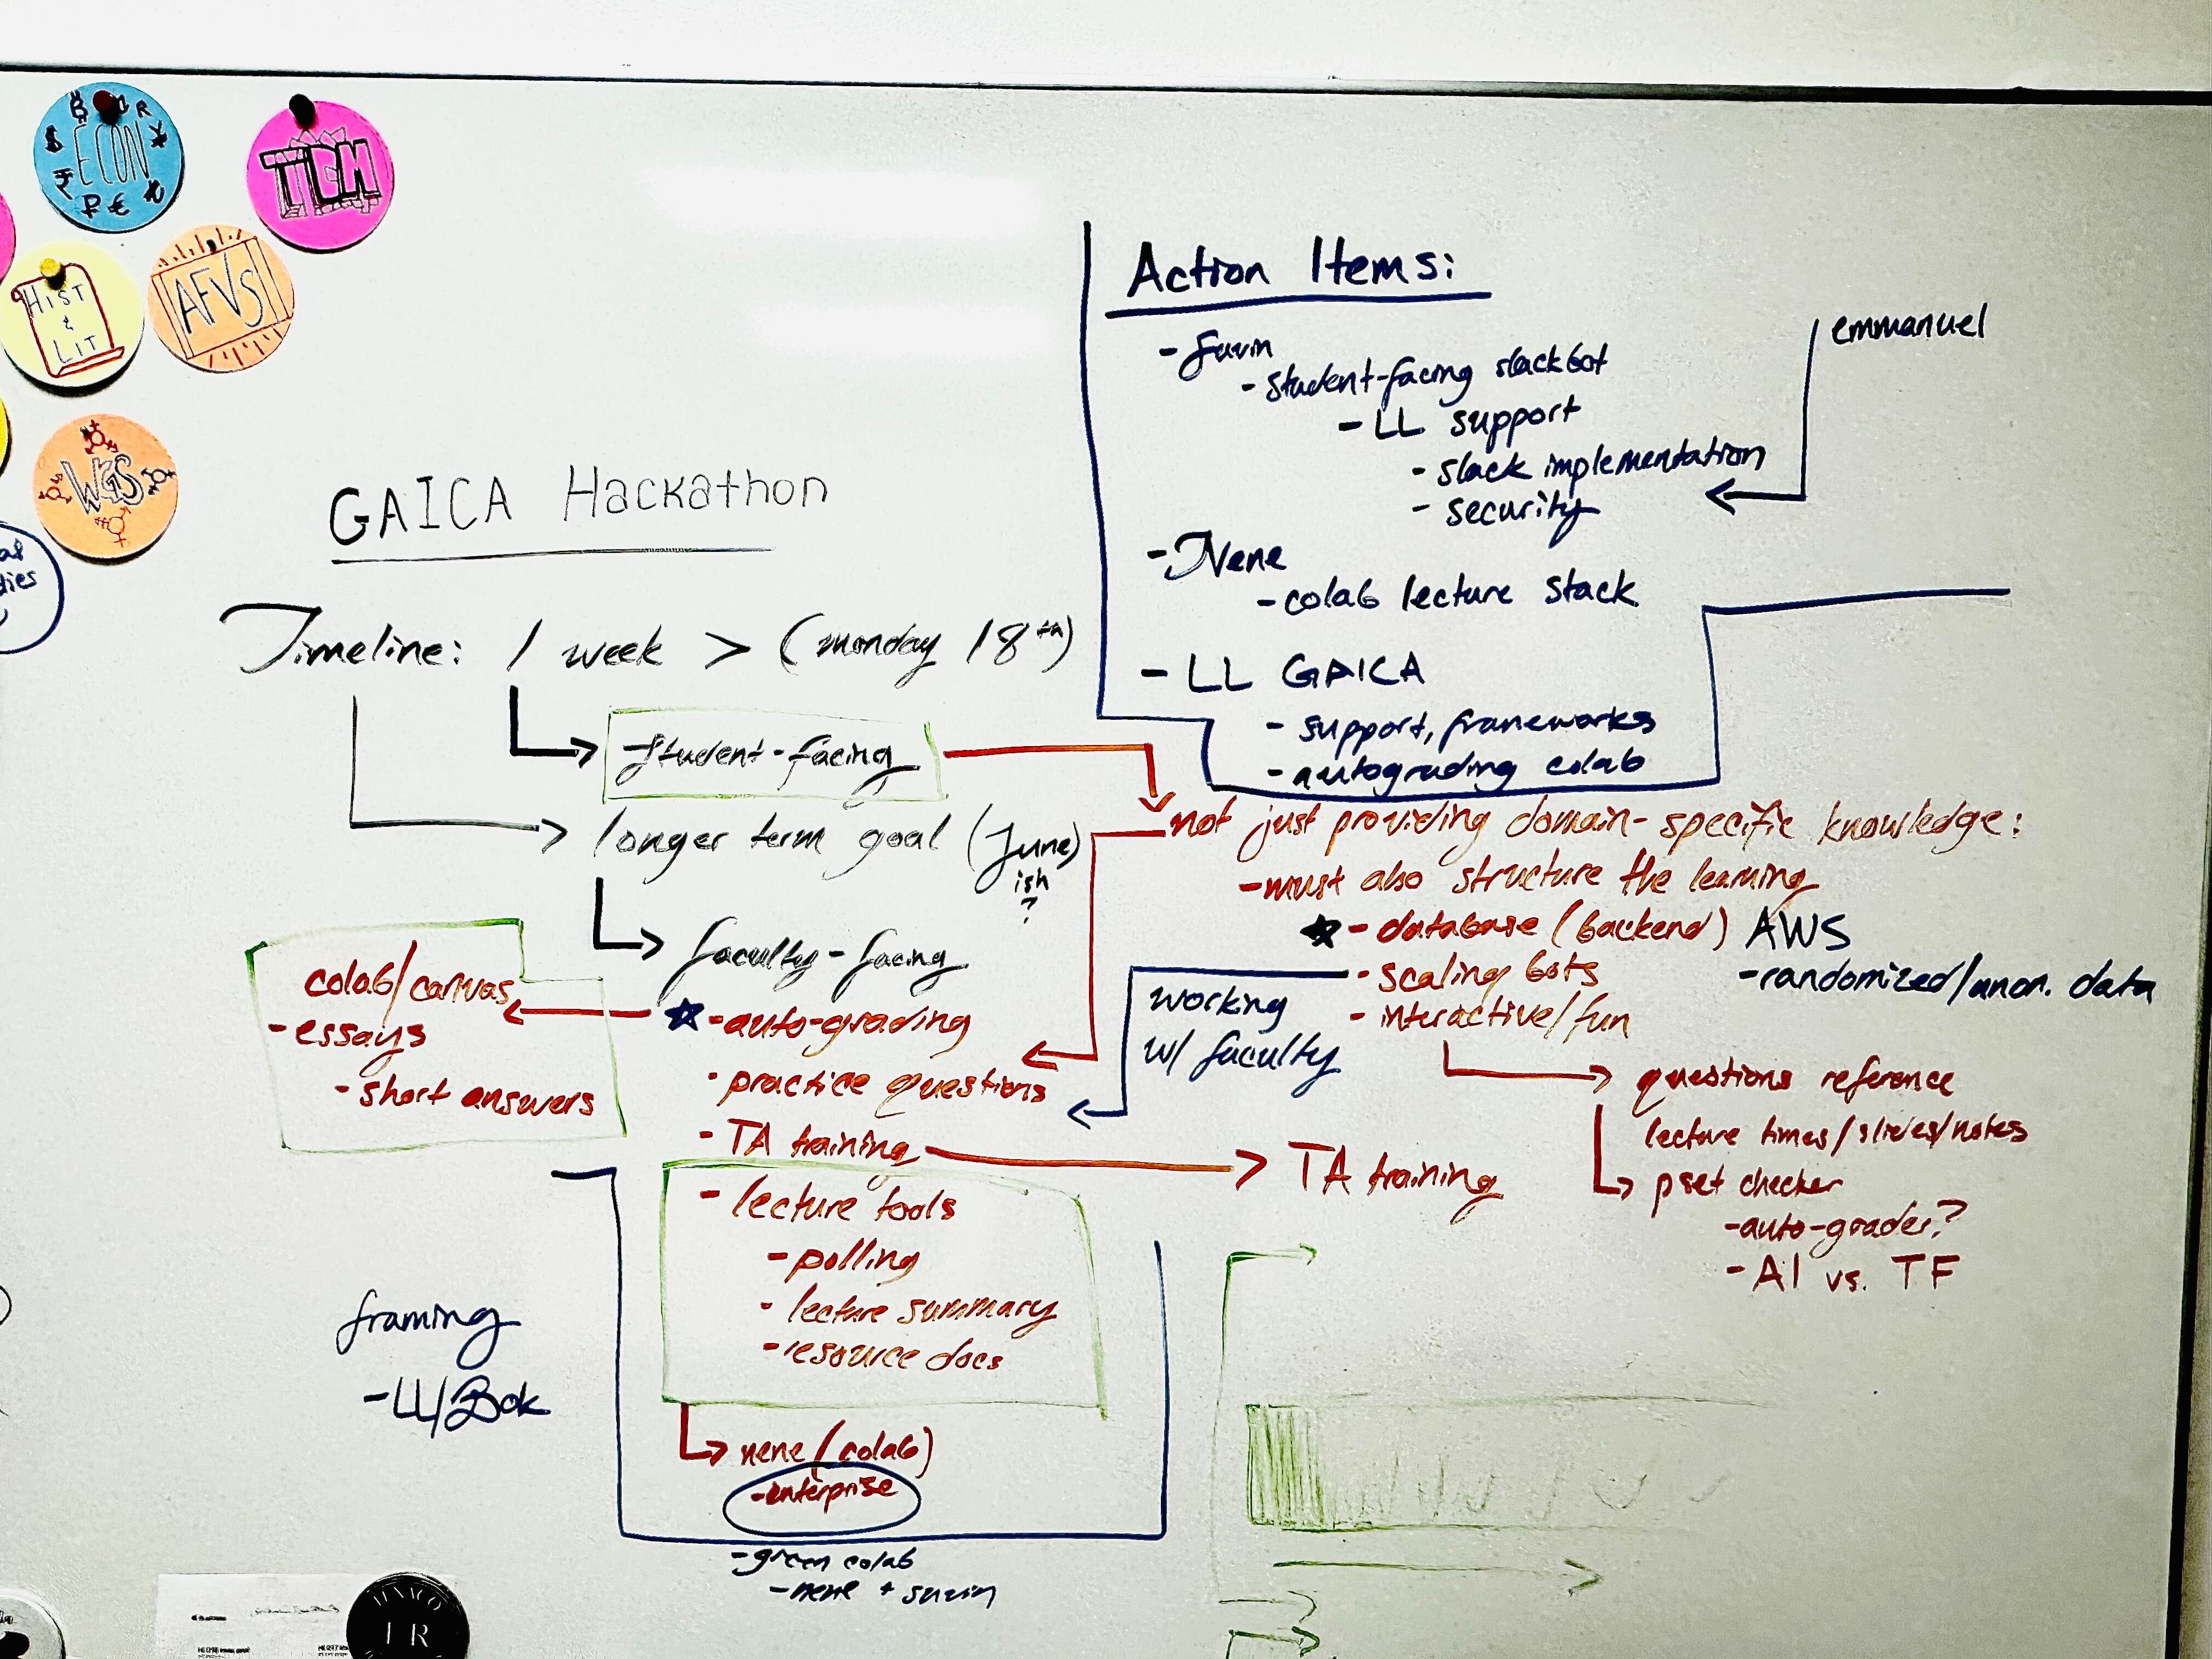 ECON
TDM
HIST
&
LIT
AFVS
WGS
GAICA Hackathon
Timeline: 1 week > (monday 18th)
-student-facing
longer term goal (June)
ish
?
faculty-facing
-auto-grading
-practice questions
-TA training
-lecture tools
-polling
-lecture summary
-resource docs
nene (colab)
-enterprise
-green colab
-nene +
colab/canvas
-essays
-short answers
framing
-LL/Bok
Action Items:
-student-facing slackbot
-LL support
-slack implementation
-security
emmanuel
-Nene
-colab lecture stack
-LL GAICA
-support, frameworks
-autograding colab
not just providing domain-specific knowledge:
-must also structure the learning
-database (backend) AWS
-randomized/anon. data
-scaling bots
-interactive/fun
working
w/ faculty
questions reference
lecture times/slides/notes
pset checker
-auto-grader?
-AI vs. TF
TA training